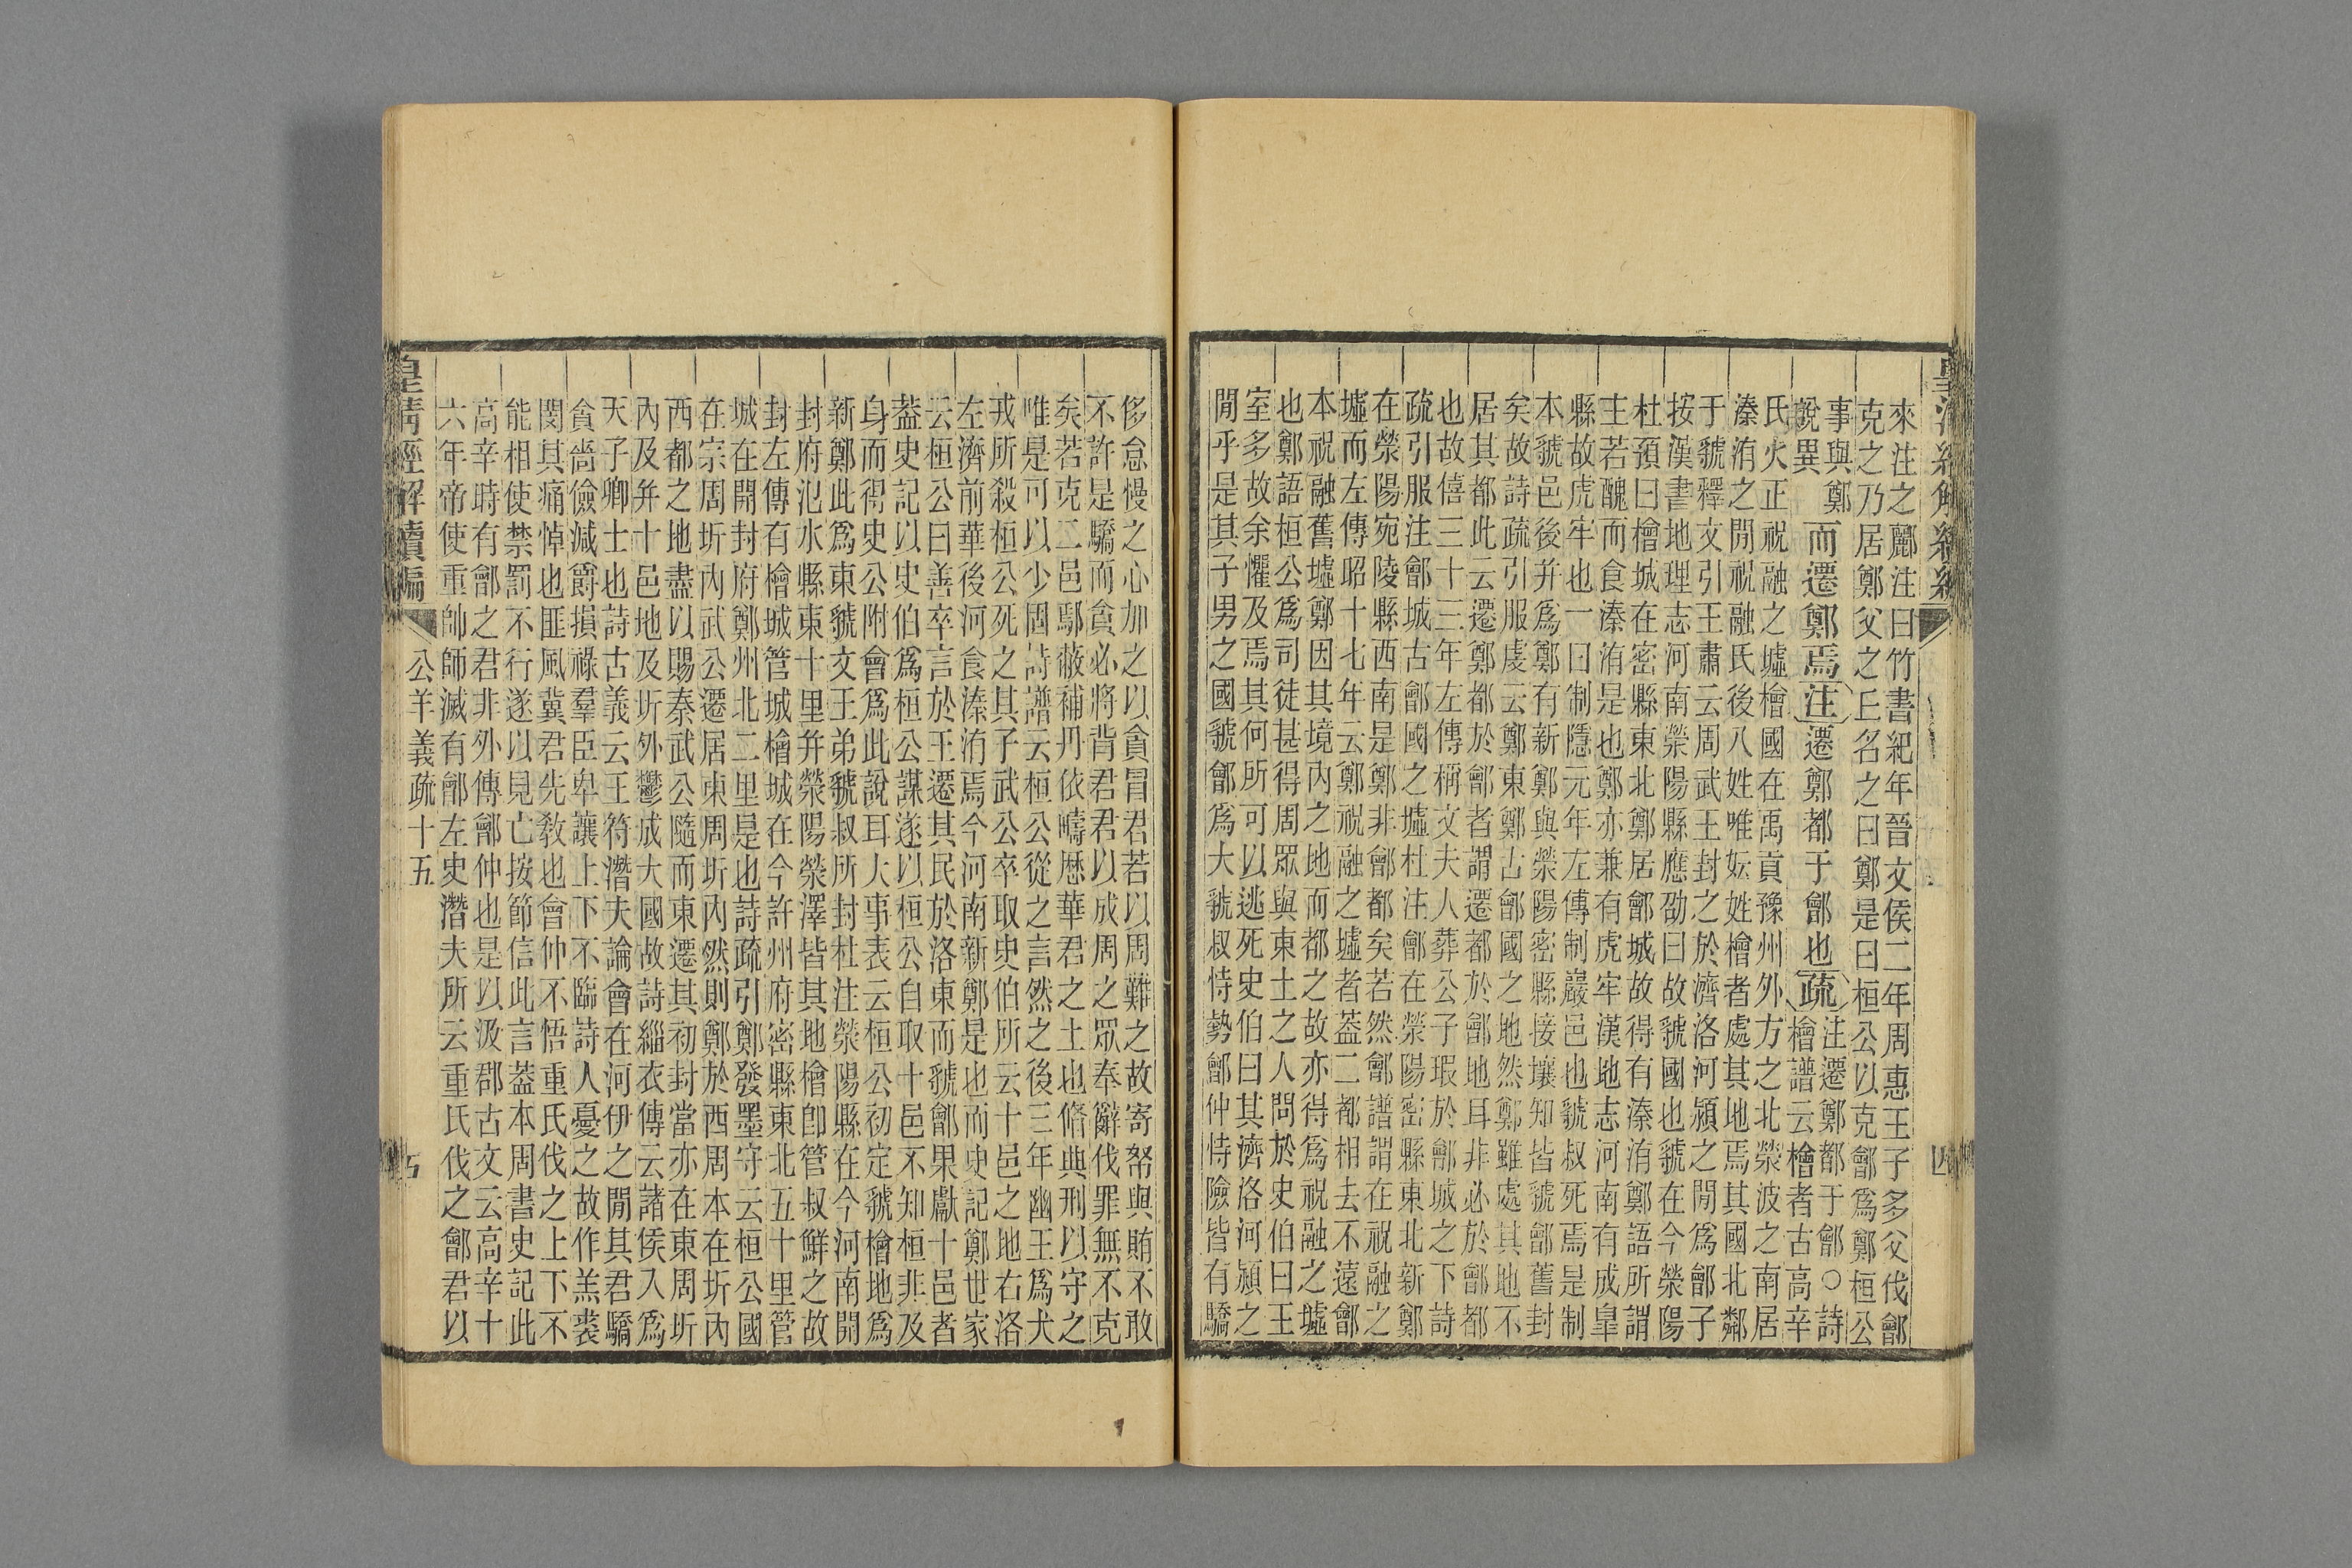 皇清經解續編
四
來注之酈注曰竹書紀年晉文侯二年周惠王子多父伐鄶
克之乃居鄭父之丘名之曰鄭是曰桓公以克鄶爲鄭桓公
事與鄭
說異
而遷鄭焉
注
遷鄭都于鄶也
疏
注遷鄭都于鄶○詩
檜譜云檜者古高辛
氏火正祝融之墟檜國在禹貢豫州外方之北滎波之南居
溱洧之閒祝融氏後八姓唯妘姓檜者處其地焉其國北鄰
于虢釋文引王肅云周武王封之於濟洛河潁之閒爲鄶子
按漢書地理志河南滎陽縣應劭曰故虢國也虢在今滎陽
杜預曰檜城在密縣東北鄭居鄶城故得有溱洧鄭語所謂
主若醜而食溱洧是也鄭亦兼有虎牢漢地志河南有成皐
縣故虎牢也一曰制隱元年左傳制巖邑也虢叔死焉是制
本虢邑後并爲鄭有新鄭與滎陽密縣接壤知皆虢鄶舊封
矣故詩疏引服虔云鄭東鄭古鄶國之地然鄭雖處其地不
居其都此云遷鄭都於鄶者謂遷都於鄶地耳非必於鄶都
也故僖三十三年左傳稱文夫人葬公子瑕於鄶城之下詩
疏引服注鄶城古鄶國之墟杜注鄶在滎陽密縣東北新鄭
在滎陽宛陵縣西南是鄭非鄶都矣若然鄶譜謂在祝融之
墟而左傳昭十七年云鄭祝融之墟者蓋二都相去不遠鄶
本祝融舊墟鄭因其境內之地而都之故亦得爲祝融之墟
也鄭語桓公爲司徒甚得周眾與東土之人問於史伯曰王
室多故余懼及焉其何所可以逃死史伯曰其濟洛河潁之
閒乎是其子男之國虢鄶爲大虢叔恃勢鄶仲恃險皆有驕
侈怠慢之心加之以貪冒君若以周難之故寄帑與賄不敢
不許是驕而貪必將背君君以成周之眾奉辭伐罪無不克
矣若克二邑鄢蔽補丹依疇歷華君之土也脩典刑以守之
唯是可以少固詩譜云桓公從之言然之後三年幽王爲犬
戎所殺桓公死之其子武公卒取史伯所云十邑之地右洛
左濟前華後河食溱洧焉今河南新鄭是也而史記鄭世家
云桓公曰善卒言於王遷其民於洛東而虢鄶果獻十邑者
葢史記以史伯爲桓公謀遂以桓公自取十邑不知桓非及
身而得史公附會爲此說耳大事表云桓公初定虢檜地爲
新鄭此爲東虢文王弟虢叔所封杜注滎陽縣在今河南開
封府氾水縣東十里并滎陽滎澤皆其地檜卽管叔鮮之故
封左傳有檜城管城檜城在今許州府密縣東北五十里管
城在開封府鄭州北二里是也詩疏引鄭發墨守云桓公國
在宗周圻內武公遷居東周圻內然則鄭於西周本在圻內
西都之地盡以賜秦武公隨而東遷其初封當亦在東周圻
內及并十邑地及圻外鬱成大國故詩緇衣傳云諸侯入爲
天子卿士也詩古義云王符潛夫論會在河伊之閒其君驕
貪嗇儉減爵損祿羣臣卑讓上下不臨詩人憂之故作羔裘
閔其痛悼也匪風冀君先敎也會仲不悟重氏伐之上下不
能相使禁罰不行遂以見亡按節信此言葢本周書史記此
高辛時有鄶之君非外傳鄶仲也是以汲郡古文云高辛十
六年帝使重帥師滅有鄶左史潛夫所云重氏伐之鄶君以
皇淸經解續編
公羊義疏十五